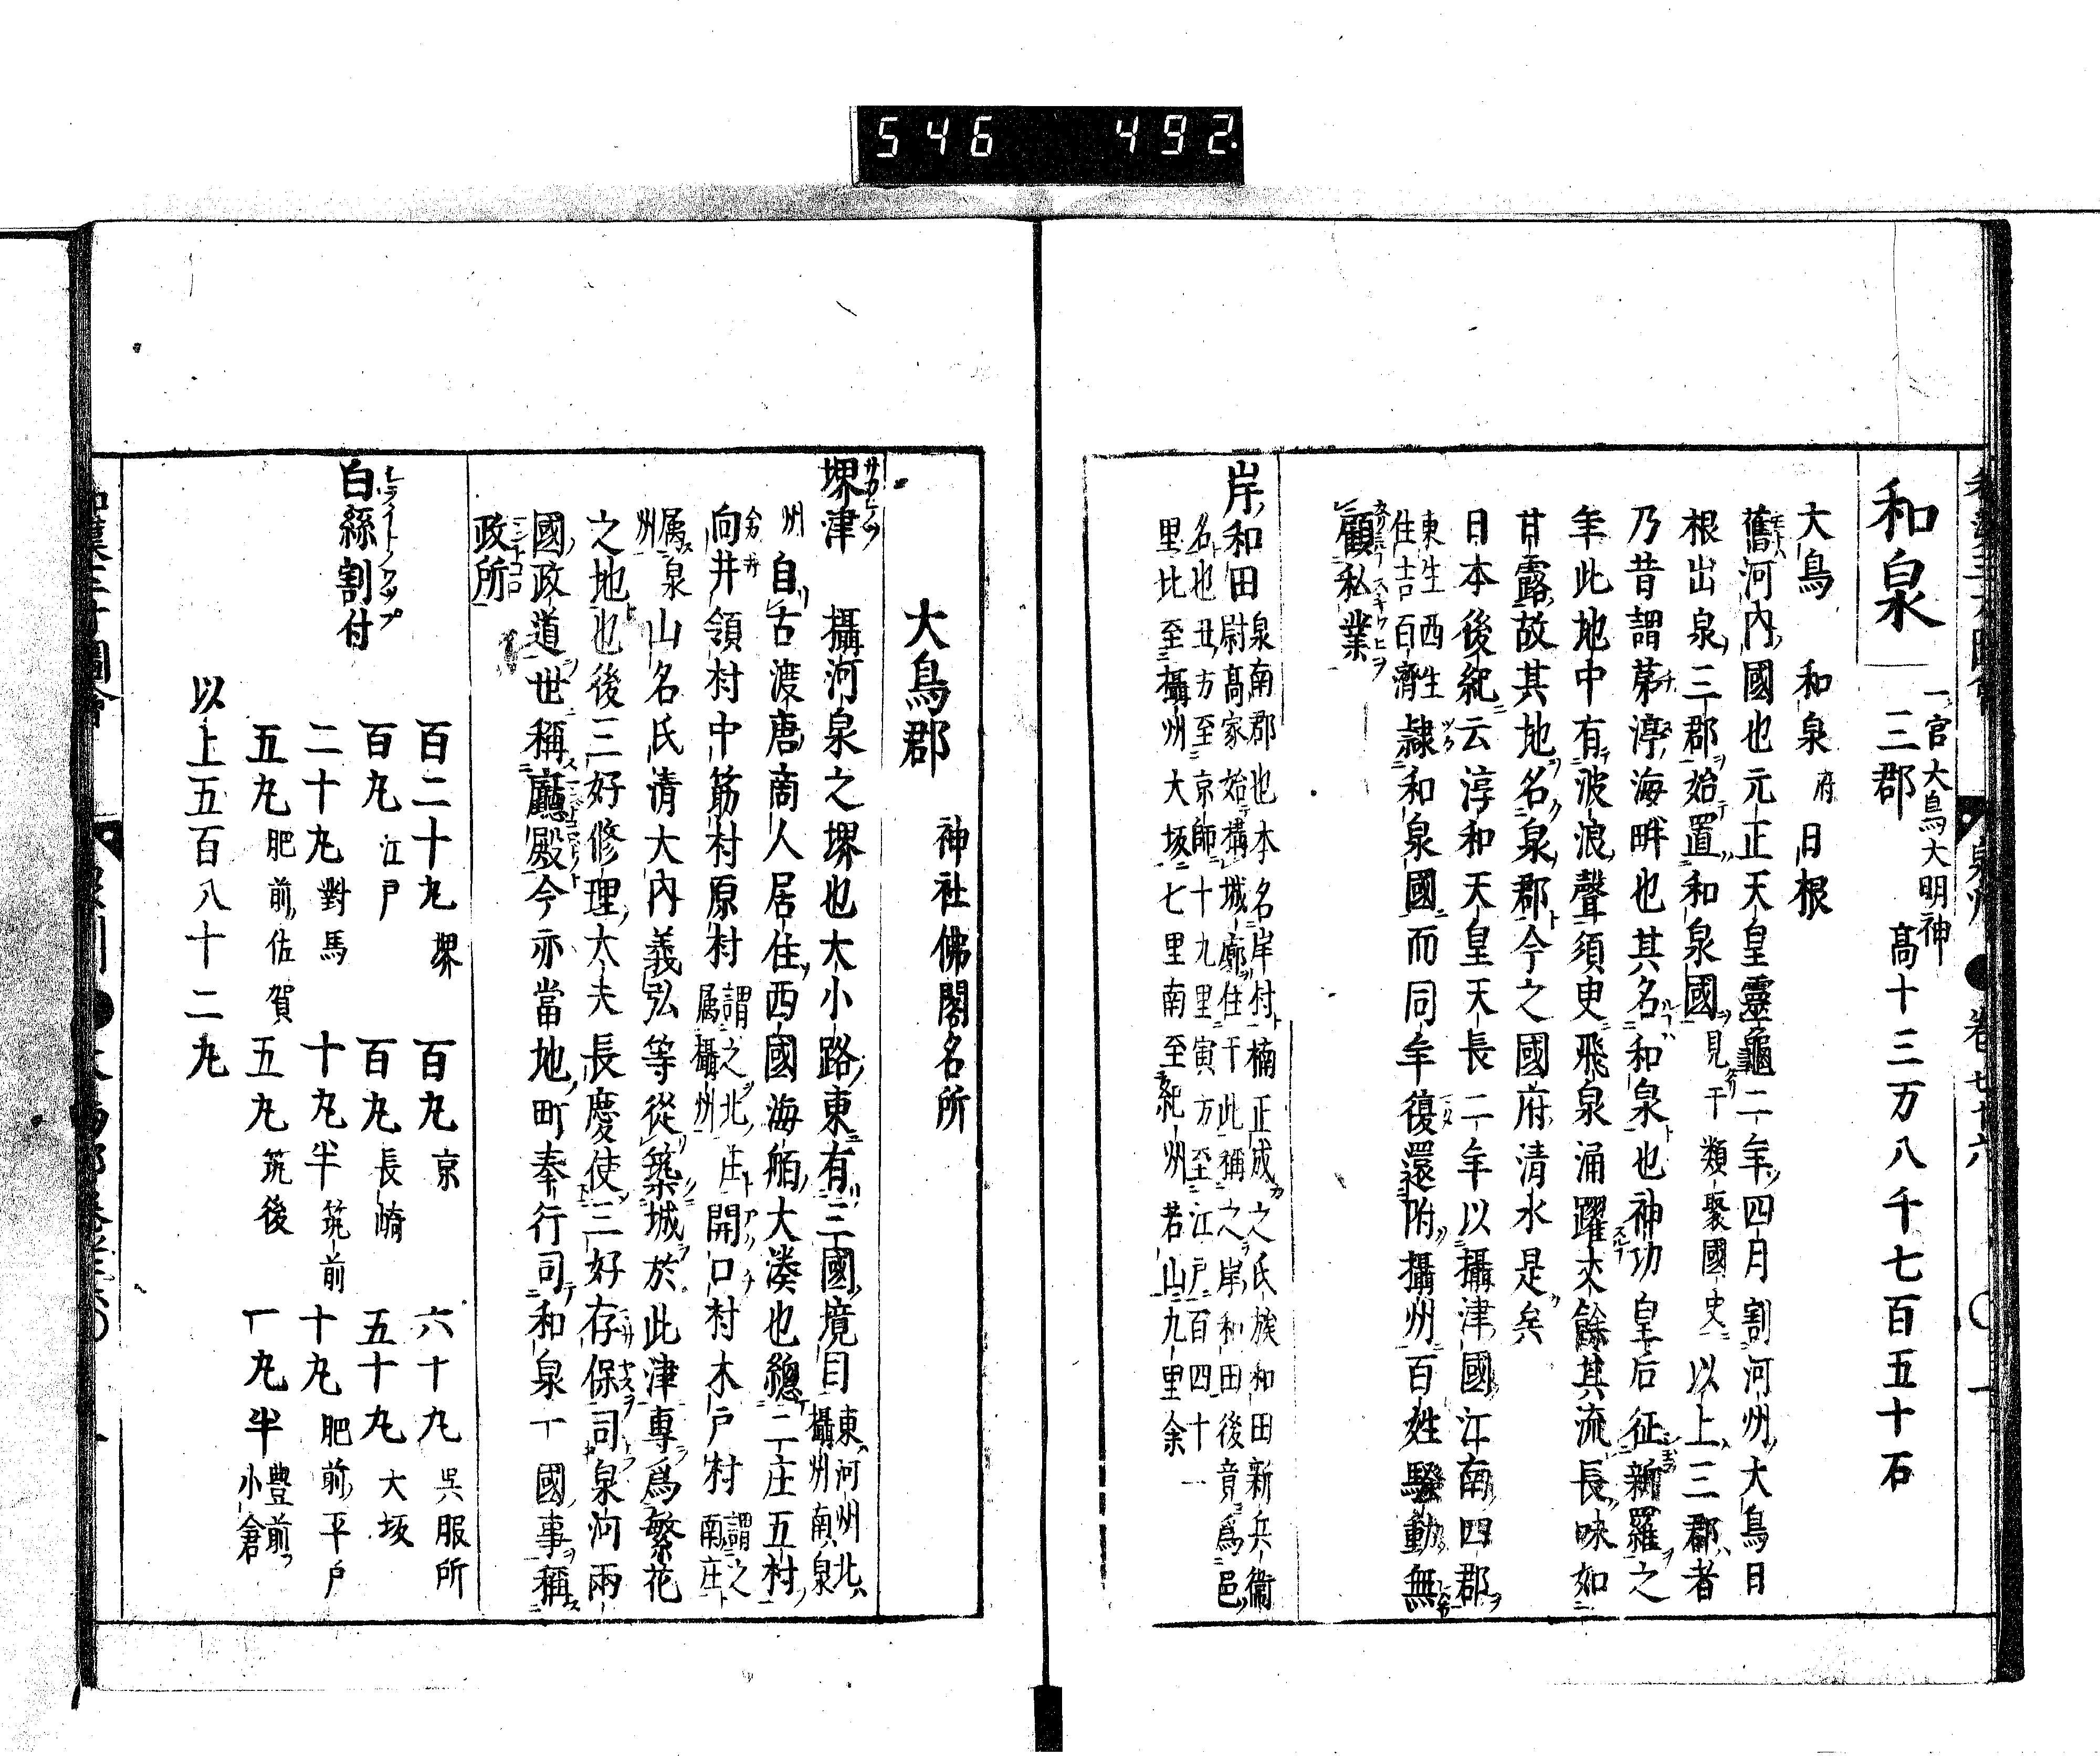 546 492
和泉
一宮大鳥大明神
三郡 高十三万八千七百五十石
大鳥 和泉府 日根
舊河内國也元正天皇靈龜二年四月割河州大鳥日
根出泉三郡始置和泉國見于類聚國史以上三郡者
乃昔謂茅渟海畔也其名和泉也神功皇后征新羅之
年此地中有波浪聲須臾飛泉涌躍丈餘其流長味如
甘露故其地名泉郡今之國府清水是矣
日本後紀云淳和天皇天長二年以攝津國江南四郡
東生西生
住吉百濟隷和泉國而同年復還附攝州百姓騷動無
顧私業
岸和田泉南郡也本名岸村楠正成之氏族和田新兵衞
尉高家始構城廓住于此稱之岸和田後竟爲邑
名也丑方至京師十九里寅方至江戸百四十一
里北至攝州大坂七里南至紀州若山九里余
大鳥郡 神社佛閣名所
堺津 攝河泉之堺也大小路東有三國境目東河州北
攝州南泉
州自古渡唐商人居住西國海舶大湊也總二庄五村
向井領村中筋村原村謂之北庄
属攝州開口村木戸村謂之
南庄
属泉
州山名氏清大内義弘等從築城於此津專爲繁花
之地也後三好修理太夫長慶使三好存保司泉河兩
國政道世稱廳殿今亦當地町奉行司和泉一國事稱
政所
白絲割付
シライトノワツプ
百二十丸堺 百丸京 六十丸呉服所
百丸江戸 百丸長崎 五十丸大坂
二十丸對馬 十丸半筑前 十丸肥前平戸
五丸肥前佐賀 五丸筑後 一丸半豊前小倉
以上五百八十二丸